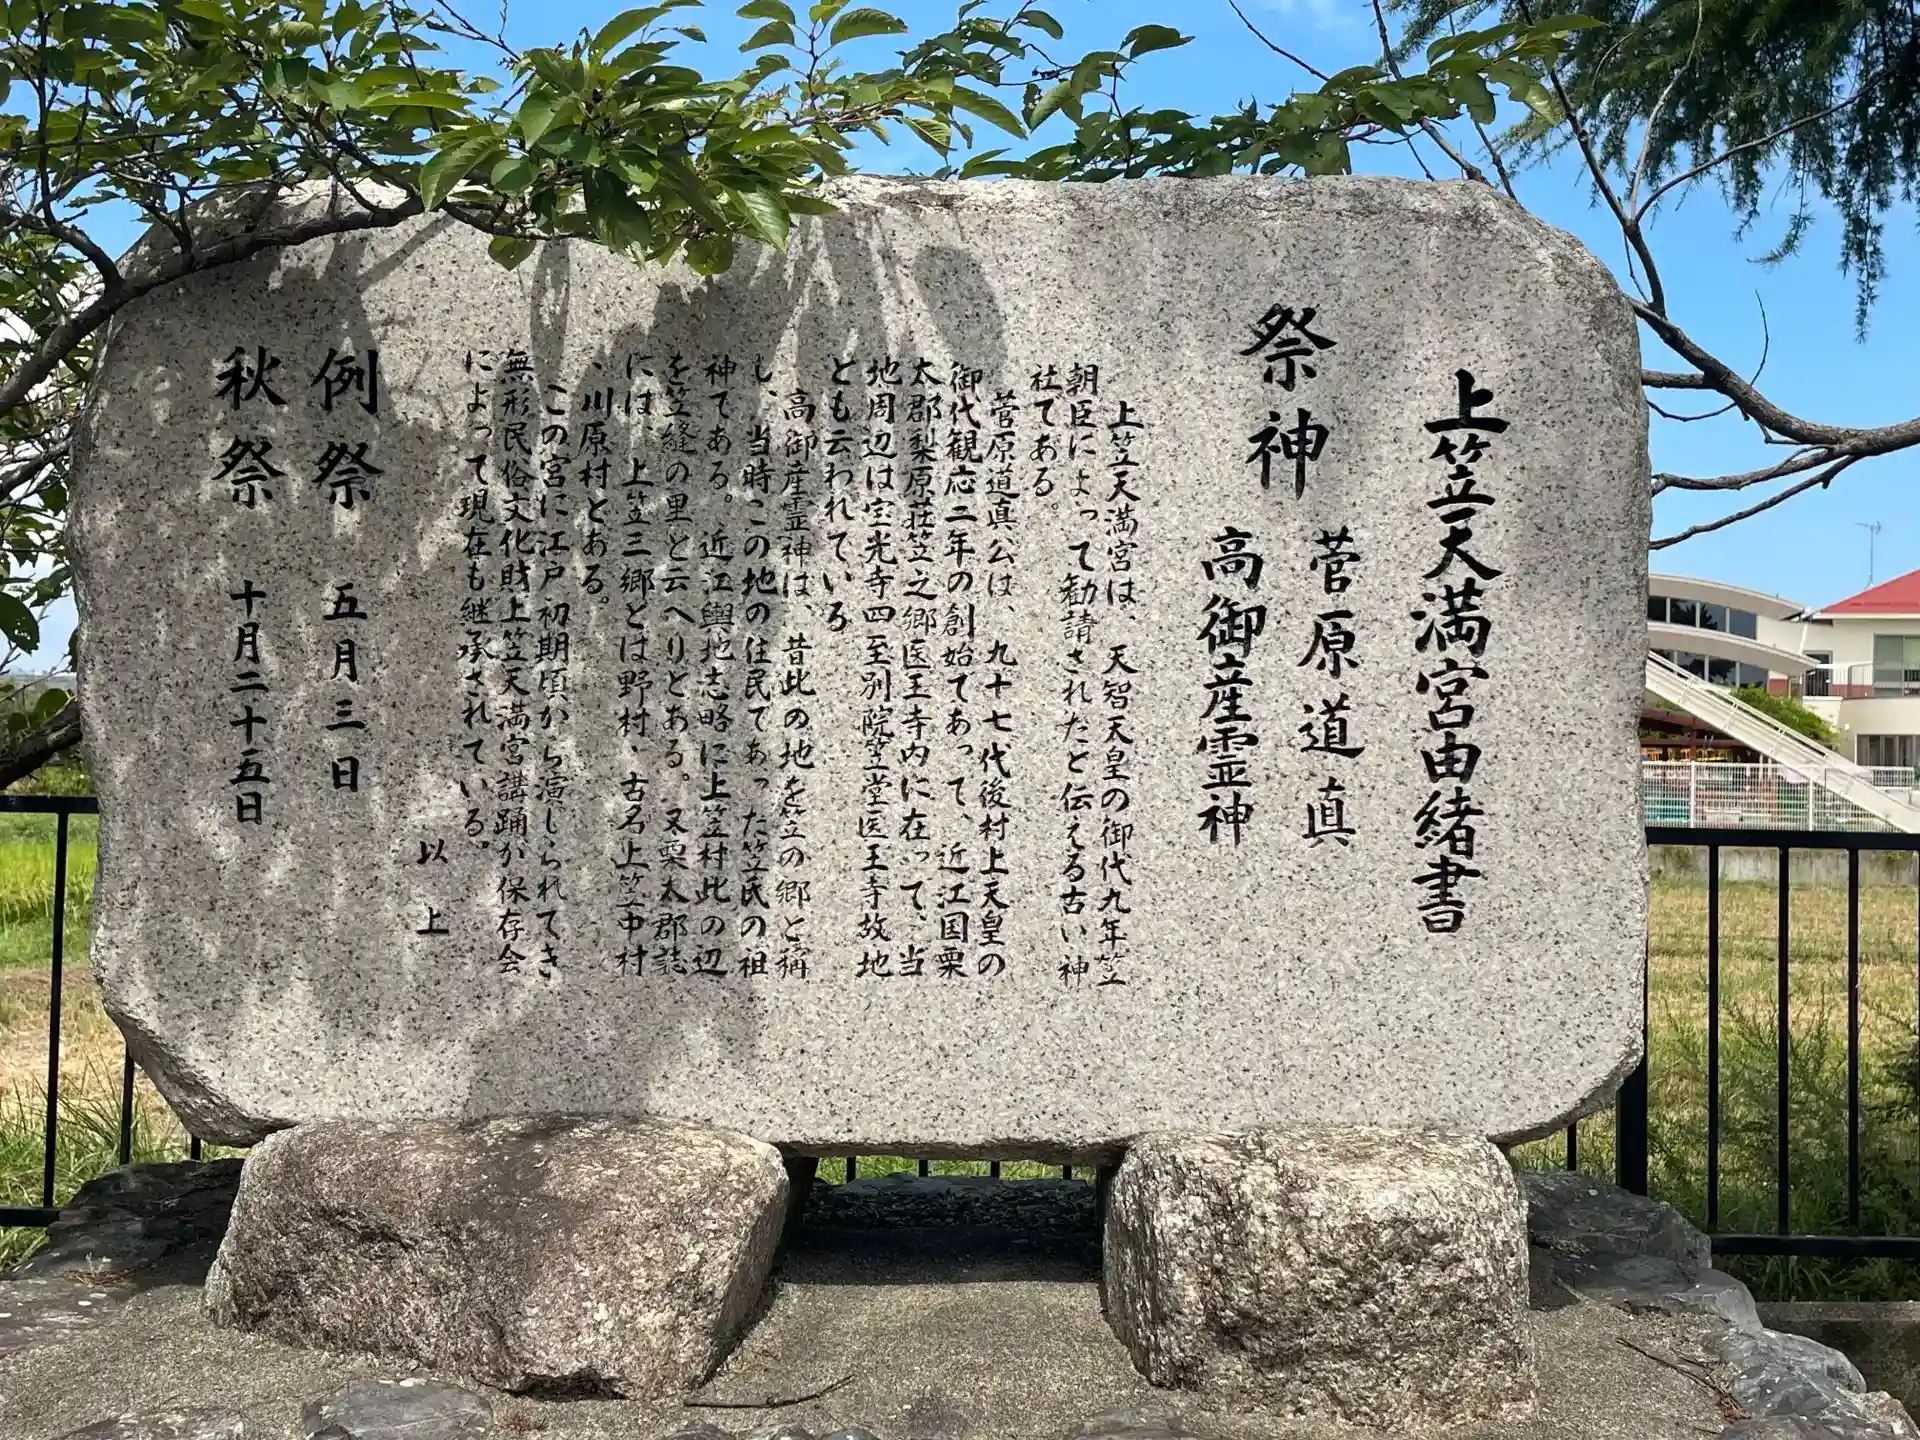 上笠天満宮由緒書
祭神
菅原道真
高御産霊神
上笠天満宮は、天智天皇の御代九年笠
朝臣によって勧請されたと伝える古い神
社てある。
菅原道真公は、九十七代後村上天皇の
御代観応二年の創始てあって、近江国栗
太郡梨原荘笠之郷医王寺内に在って、当
地周辺は宝光寺四至別院笠堂医王寺故地
とも云われている
高御産霊神は、昔此の地を笠の郷と稱
し、当時この地の住民てあった笠氏の祖
神てある。近江輿地志略に上笠村此の辺
を笠縫の里と云へりとある。又栗太郡誌
には、上笠三郷とは野村、古名上笠中村
、川原村とある。
この宮に江戸初期頃から演じられてき
無形民俗文化財上笠天満宮講踊が保存会
によって現在も継承されている。
以上
例祭 五月三日
秋祭 十月二十五日